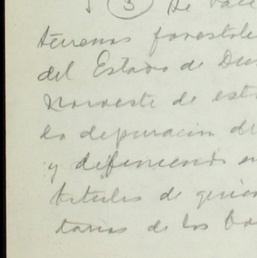 (3) De
terrenos forestale
del Estado de Du
Noroeste de est
la depuración de
y definiendo su
títulos de quien
tarios de los bo